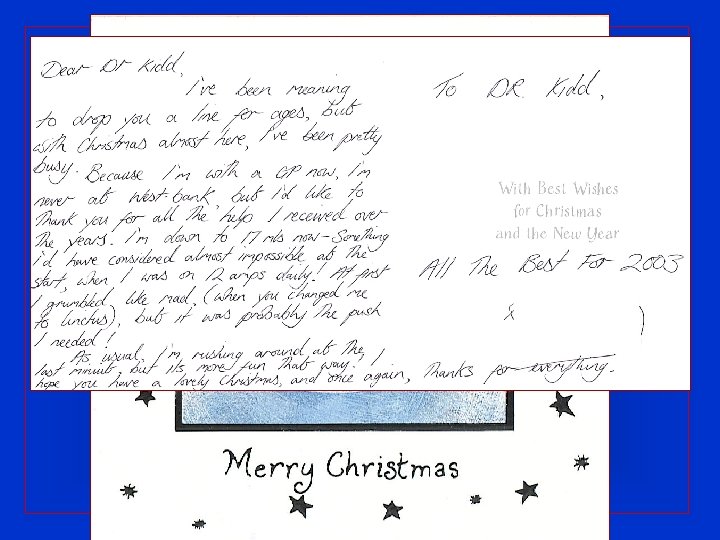 Dear Dr Kidd,
I've been meaning
to drop you a line for ages, but
with Christmas almost here, I've been pretty
busy. Because I'm with a GP now, I'm
never at West-bank, but I'd like to
Thank you for all the help I received over
the years. I'm down to 17 mls now - Something
I'd have considered almost impossible at the
start, when I was on 12 amps daily! At first
I grumbled like mad, (when you changed me
to linctus), but it was probably the push
I needed!
As usual, I'm rushing around at the
last minute, but its more fun that way! I
hope you have a lovely Christmas, and once again, Thanks for everything.
To DR. Kidd,
With Best Wishes
for Christmas
and the New Year
All The Best For 2003
x
Merry Christmas